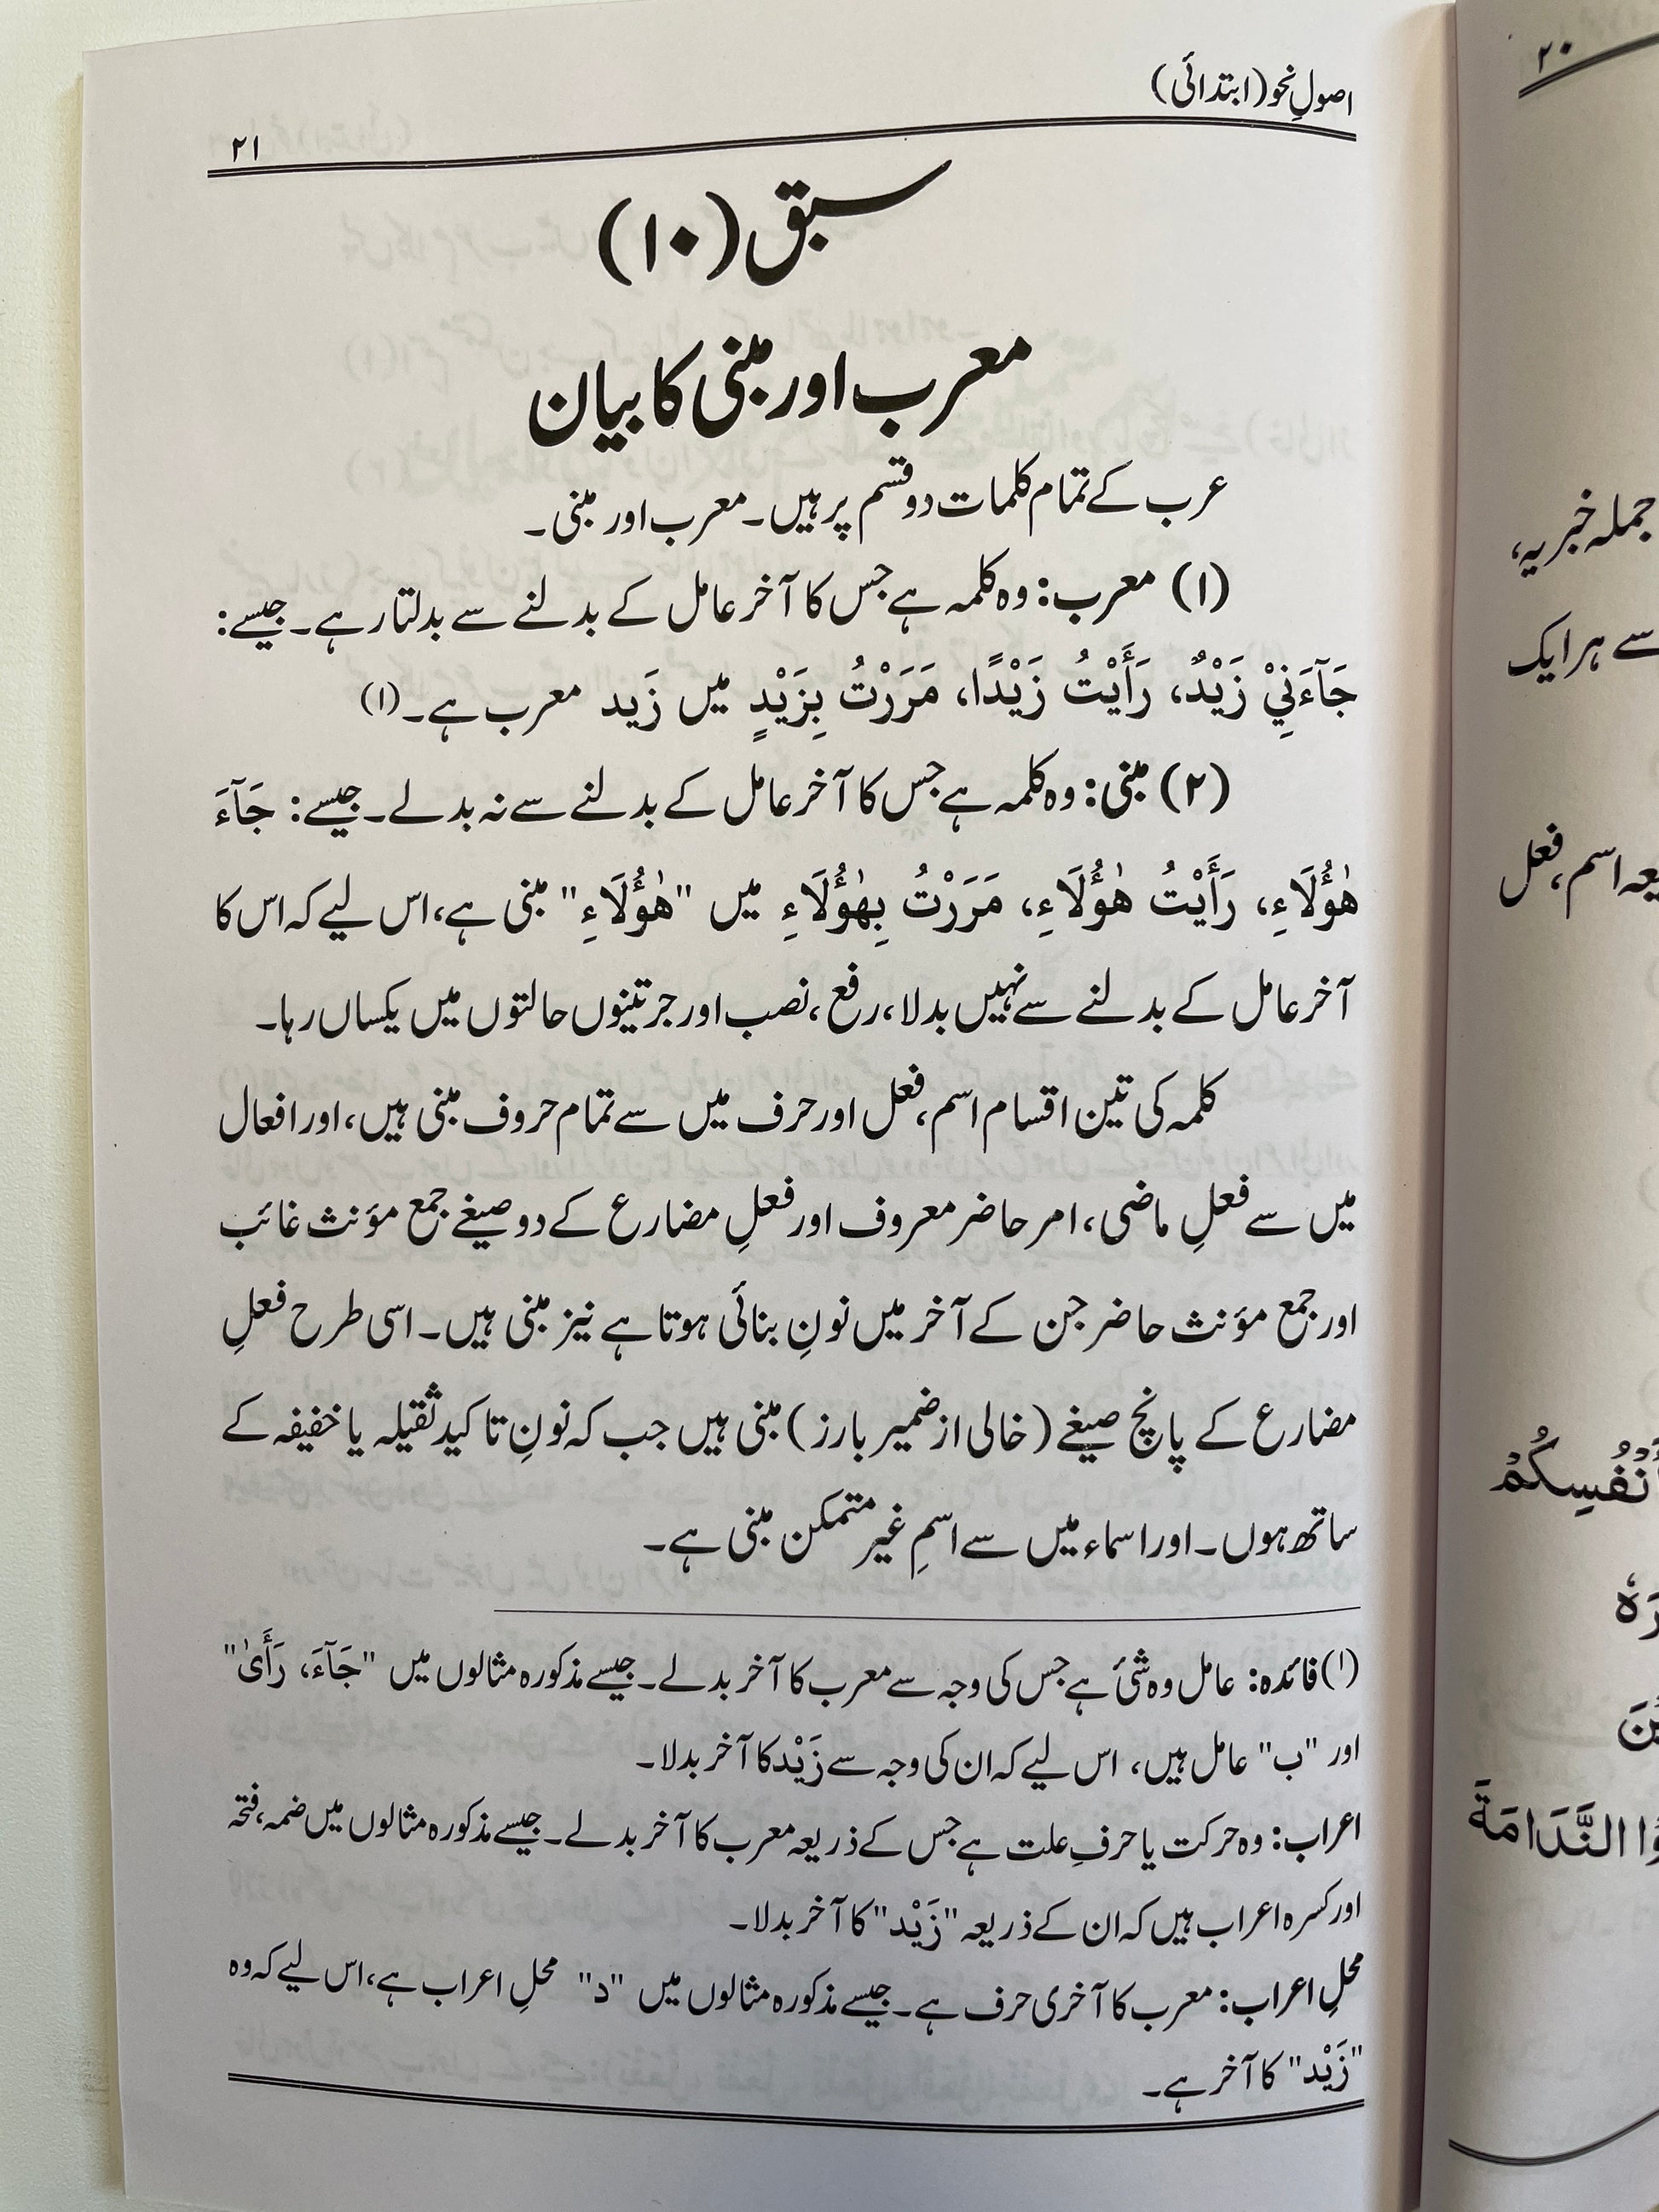 اصولِ نحو (ابتدائی)
۲۱
سبق (۱۰)
معرب اور مبنی کا بیان
عرب کے تمام کلمات دو قسم پر ہیں۔ معرب اور مبنی۔
(۱) معرب: وہ کلمہ ہے جس کا آخر عامل کے بدلنے سے بدلتا رہے۔ جیسے:
جَآءَنِيْ زَيْدٌ، رَأَيْتُ زَيْدًا، مَرَرْتُ بِزَيْدٍ میں زَید معرب ہے۔(۱)
(۲) مبنی: وہ کلمہ ہے جس کا آخر عامل کے بدلنے سے نہ بدلے۔ جیسے: جَآءَ
هٰؤُلَاءِ، رَأَيْتُ هٰؤُلَاءِ، مَرَرْتُ بِهٰؤُلَاءِ میں "هٰؤُلَاءِ" مبنی ہے، اس لیے کہ اس کا
آخر عامل کے بدلنے سے نہیں بدلا، رفع، نصب اور جر تینوں حالتوں میں یکساں رہا۔
کلمہ کی تین اقسام اسم، فعل اور حرف میں سے تمام حروف مبنی ہیں، اور افعال
میں سے فعلِ ماضی، امر حاضر معروف اور فعلِ مضارع کے دو صیغے جمع مؤنث غائب
اور جمع مؤنث حاضر جن کے آخر میں نونِ بنائی ہوتا ہے نیز مبنی ہیں۔ اسی طرح فعلِ
مضارع کے پانچ صیغے (خالی از ضمیر بارز) مبنی ہیں جب کہ نونِ تاکید ثقیلہ یا خفیفہ کے
ساتھ ہوں۔ اور اسماء میں سے اسمِ غیر متمکن مبنی ہے۔
(۱) فائدہ: عامل وہ شئ ہے جس کی وجہ سے معرب کا آخر بدلے۔ جیسے مذکورہ مثالوں میں "جَآءَ، رَأَىٰ"
اور "ب" عامل ہیں، اس لیے کہ ان کی وجہ سے زَيْد کا آخر بدلا۔
اعراب: وہ حرکت یا حرفِ علت ہے جس کے ذریعہ معرب کا آخر بدلے۔ جیسے مذکورہ مثالوں میں ضمہ، فتحہ
اور کسرہ اعراب ہیں کہ ان کے ذریعہ "زَيْد" کا آخر بدلا۔
محلِ اعراب: معرب کا آخری حرف ہے۔ جیسے مذکورہ مثالوں میں "د" محلِ اعراب ہے، اس لیے کہ وہ
"زَيْد" کا آخر ہے۔
۲۰
جملہ خبریہ،
سے ہر ایک
اسم، فعل
النَّدَامَةَ